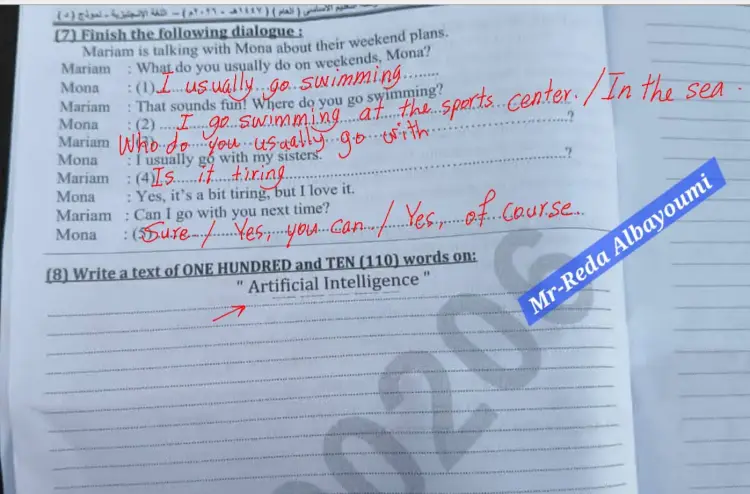 (7) Finish the following dialogue :
Mariam is talking with Mona about their weekend plans.
Mariam : What do you usually do on weekends, Mona?
Mona : (1) I usually go swimming
Mariam : That sounds fun! Where do you go swimming?
Mona : (2) I go swimming at the sports center. / In the sea.
Mariam Who do you usually go with ?
Mona : I usually go with my sisters.
Mariam : (4) Is it tiring ?
Mona : Yes, it's a bit tiring, but I love it.
Mariam : Can I go with you next time?
Mona : (5) Sure / Yes, you can / Yes, of course
Mr-Reda Albayoumi
(8) Write a text of ONE HUNDRED and TEN (110) words on:
" Artificial Intelligence "
00206